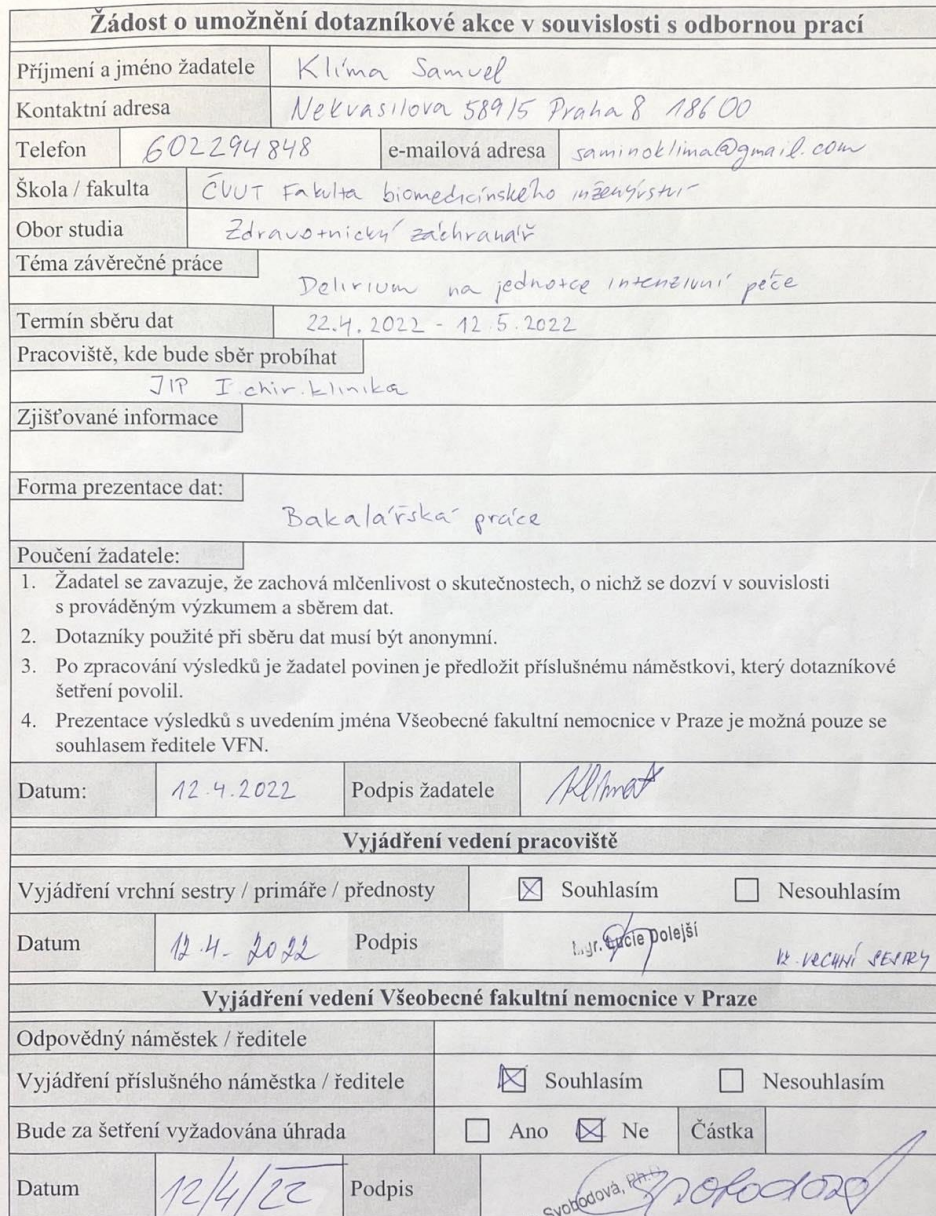 Žádost o umožnění dotazníkové akce v souvislosti s odbornou prací
Příjmení a jméno žadatele Klíma Samuel
Kontaktní adresa Nekvasilova 589/5 Praha 8 18600
Telefon 602294848 e-mailová adresa saminoklima@gmail.com
Škola / fakulta ČVUT Fakulta biomedicínského inženýrství
Obor studia Zdravotnický záchranář
Téma závěrečné práce
Delirium na jednotce intenzivní péče
Termín sběru dat 22.4.2022 - 12.5.2022
Pracoviště, kde bude sběr probíhat
JIP I. chir. klinika
Zjišťované informace
Forma prezentace dat:
Bakalářská práce
Poučení žadatele:
1. Žadatel se zavazuje, že zachová mlčenlivost o skutečnostech, o nichž se dozví v souvislosti
s prováděným výzkumem a sběrem dat.
2. Dotazníky použité při sběru dat musí být anonymní.
3. Po zpracování výsledků je žadatel povinen je předložit příslušnému náměstkovi, který dotazníkové
šetření povolil.
4. Prezentace výsledků s uvedením jména Všeobecné fakultní nemocnice v Praze je možná pouze se
souhlasem ředitele VFN.
Datum: 12.4.2022 Podpis žadatele
Vyjádření vedení pracoviště
Vyjádření vrchní sestry / primáře / přednosty Souhlasím Nesouhlasím
Datum 12.4. 2022 Podpis Mgr. Lucie Dolejší VRCHNÍ SESTRY
Vyjádření vedení Všeobecné fakultní nemocnice v Praze
Odpovědný náměstek / ředitele
Vyjádření příslušného náměstka / ředitele Souhlasím Nesouhlasím
Bude za šetření vyžadována úhrada Ano Ne Částka
Datum 12/4/22 Podpis Svobodová, Ph.D.